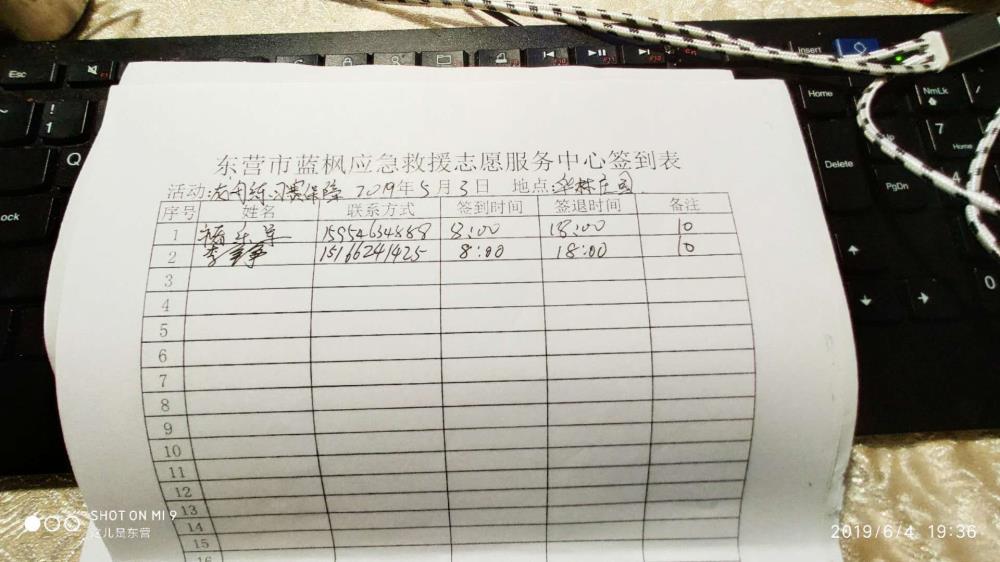 东营市蓝枫应急救援志愿服务中心签到表
活动: 保障 2019年5月3日 地点:
序号 姓名 联系方式 签到时间 签退时间 备注
1 15954634888 8:00 18:00 10
2 李 15166241425 8:00 18:00 10
3
4
5
6
7
8
9
10
11
12
13
14
15
16
Esc
F1
Insert
Home
NmLk
!
1
Q
7
Home
Delete
PgDn
4
ock
0
SHOT ON MI 9
这儿是东营
2019/6/4 19:36